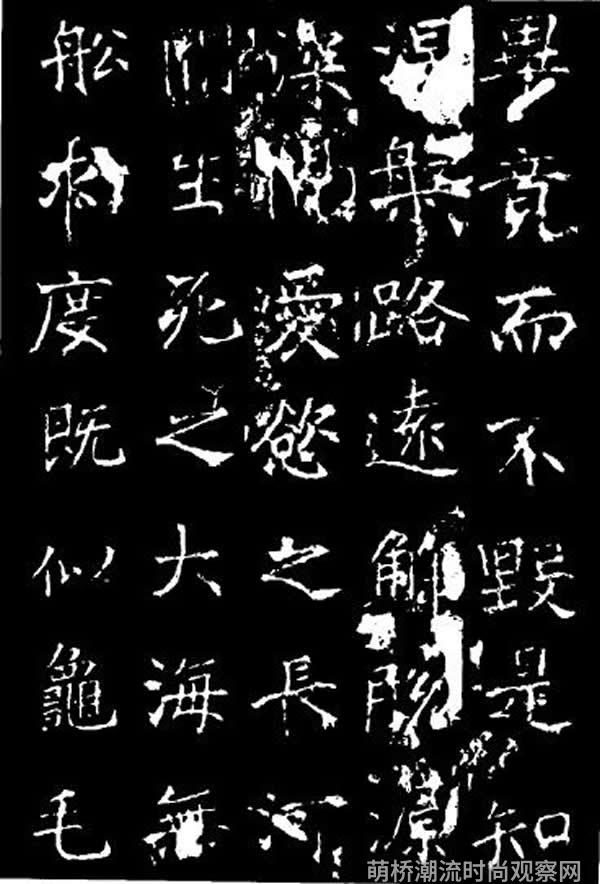 畢竟而不毀是知
涅槃路遠解脫源
深愛慾之長河
生死之大海無
舩求度既似龜毛
萌桥潮流时尚观察网